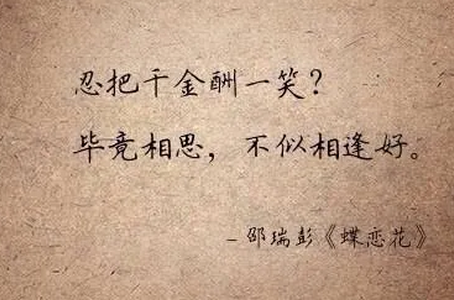 忍把千金酬一笑？
毕竟相思，不似相逢好。
－邵瑞彭《蝶恋花》